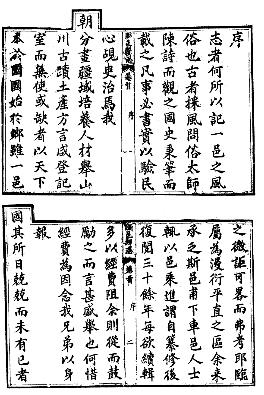 序
志者何所以記一邑之風
俗也古者採風問俗太師
陳詩而觀之國史秉筆而
載之凡事必書實以驗民
心覘吏治焉我
卷首 序 一
朝分畫疆域培養人材舉山
川古蹟土產方言咸登記
室而無使或缺者以天下
於國國始於鄉雖一邑
之微詎可畧而弗考耶臨
屬為漫衍平直之區余來
承乏斯邑甫下車邑人士
輒以邑乘進謂自纂修後
復閱三十餘年每欲續輯
卷首 序 二
多以經費阻余則從而鼓
勵之而言甚盛舉也何惜
經費為因念我兄弟以身
報
國其所日兢兢而未有已者